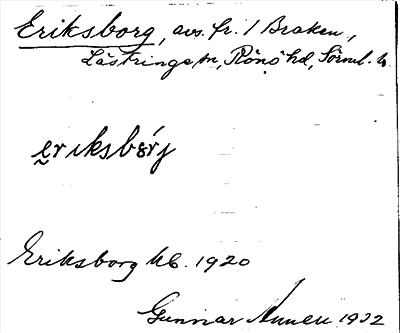 Eriksborg, avs. fr. 1 Braken,
Lästringe sn, Rönö hd, Sörml. l.
e̯riksbórj
Eriksborg kb. 1920
Gunnar 1932